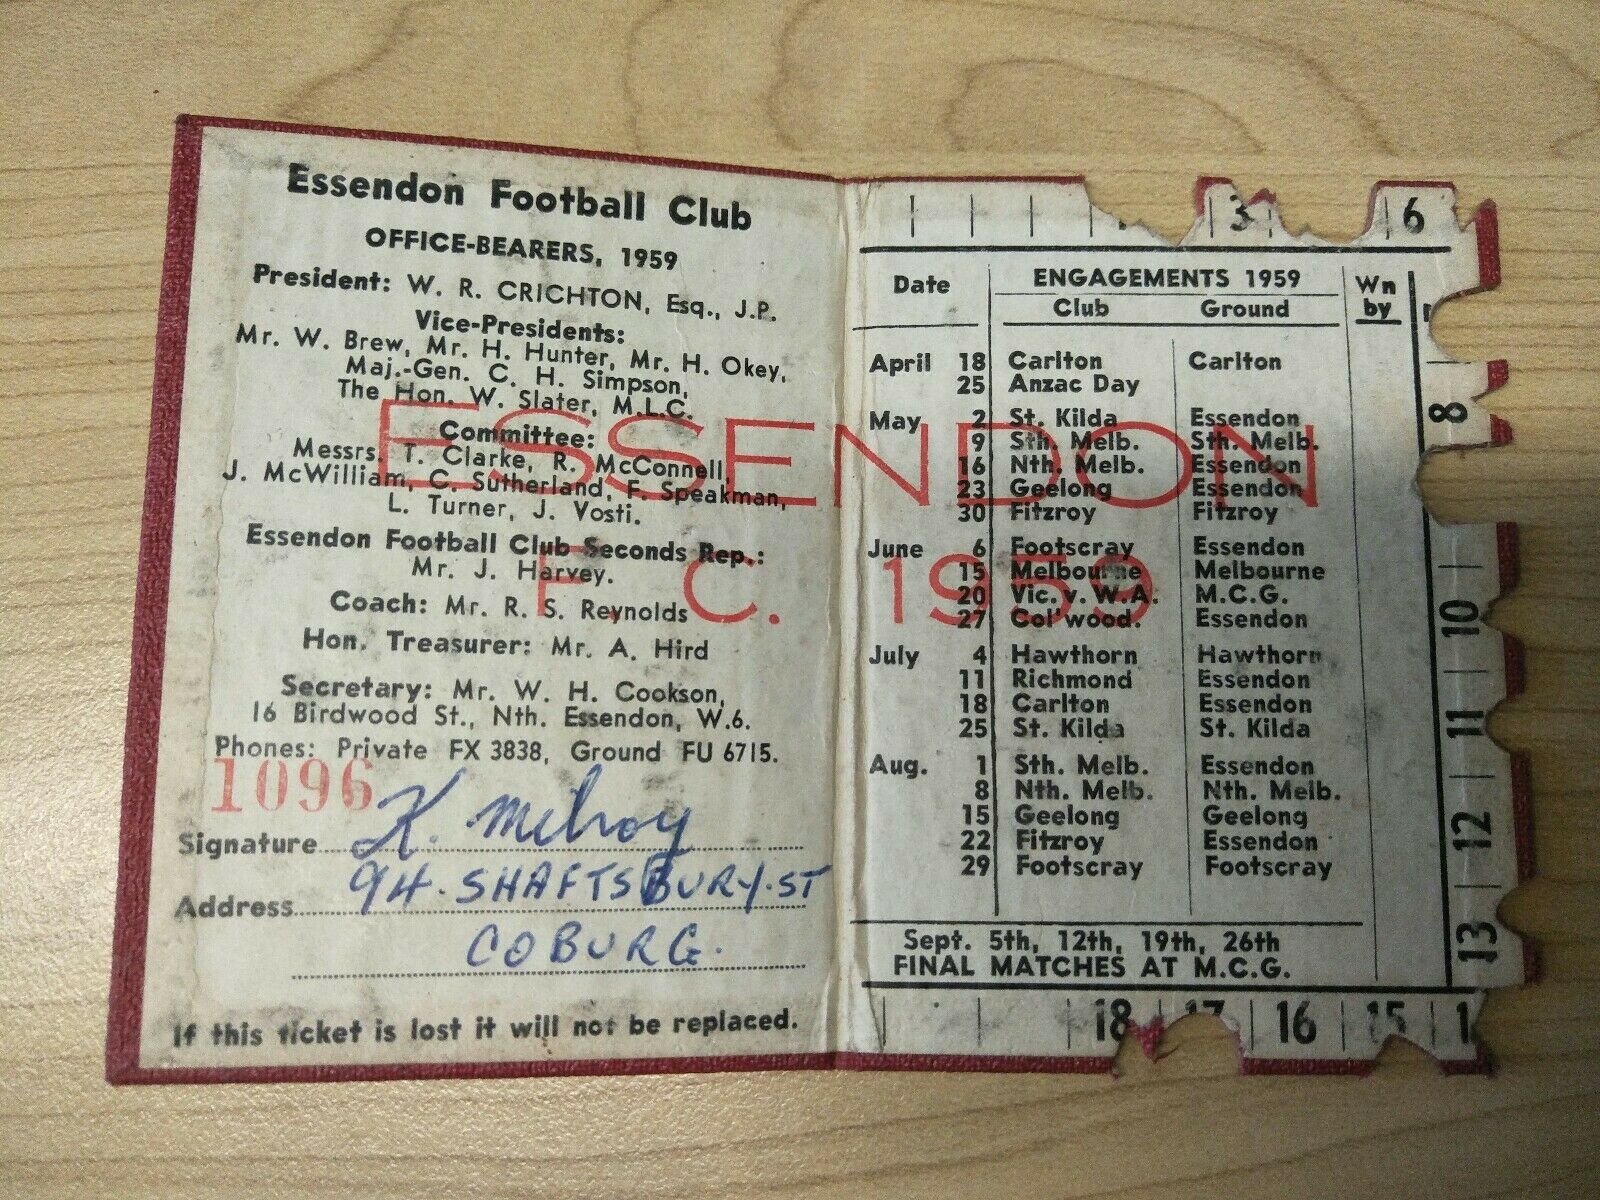 Essendon Football Club
OFFICE-BEARERS, 1959
President: W. R. CRICHTON, Esq., J.P.
Vice-Presidents:
Mr. W. Brew, Mr. H. Hunter, Mr. H. Okey,
Maj.-Gen. C. H. Simpson,
The Hon. W. Slater, M.L.C.
Committee:
Messrs. T. Clarke, R. McConnell,
J. McWilliam, C. Sutherland, F. Speakman,
L. Turner, J. Vosti.
Essendon Football Club Seconds Rep.:
Mr. J. Harvey.
Coach: Mr. R. S. Reynolds
Hon. Treasurer: Mr. A. Hird
Secretary: Mr. W. H. Cookson,
16 Birdwood St., Nth. Essendon, W.6.
Phones: Private FX 3838, Ground FU 6715.
1096
Signature K. McIlroy
Address 94. SHAFTSBURY. ST
COBURG.
If this ticket is lost it will not be replaced.
ESSENDON
F. C. 1959
3 6
Date ENGAGEMENTS 1959 Wn by
Club Ground
April 18 Carlton Carlton
25 Anzac Day
May 2 St. Kilda Essendon
9 Sth. Melb. Sth. Melb.
16 Nth. Melb. Essendon
23 Geelong Essendon
30 Fitzroy Fitzroy
June 6 Footscray Essendon
15 Melbourne Melbourne
20 Vic. v. W.A. M.C.G.
27 Col'wood. Essendon
July 4 Hawthorn Hawthorn
11 Richmond Essendon
18 Carlton Essendon
25 St. Kilda St. Kilda
Aug. 1 Sth. Melb. Essendon
8 Nth. Melb. Nth. Melb.
15 Geelong Geelong
22 Fitzroy Essendon
29 Footscray Footscray
Sept. 5th, 12th, 19th, 26th
FINAL MATCHES AT M.C.G.
8
10
11
12
13
18 17 16 15 1